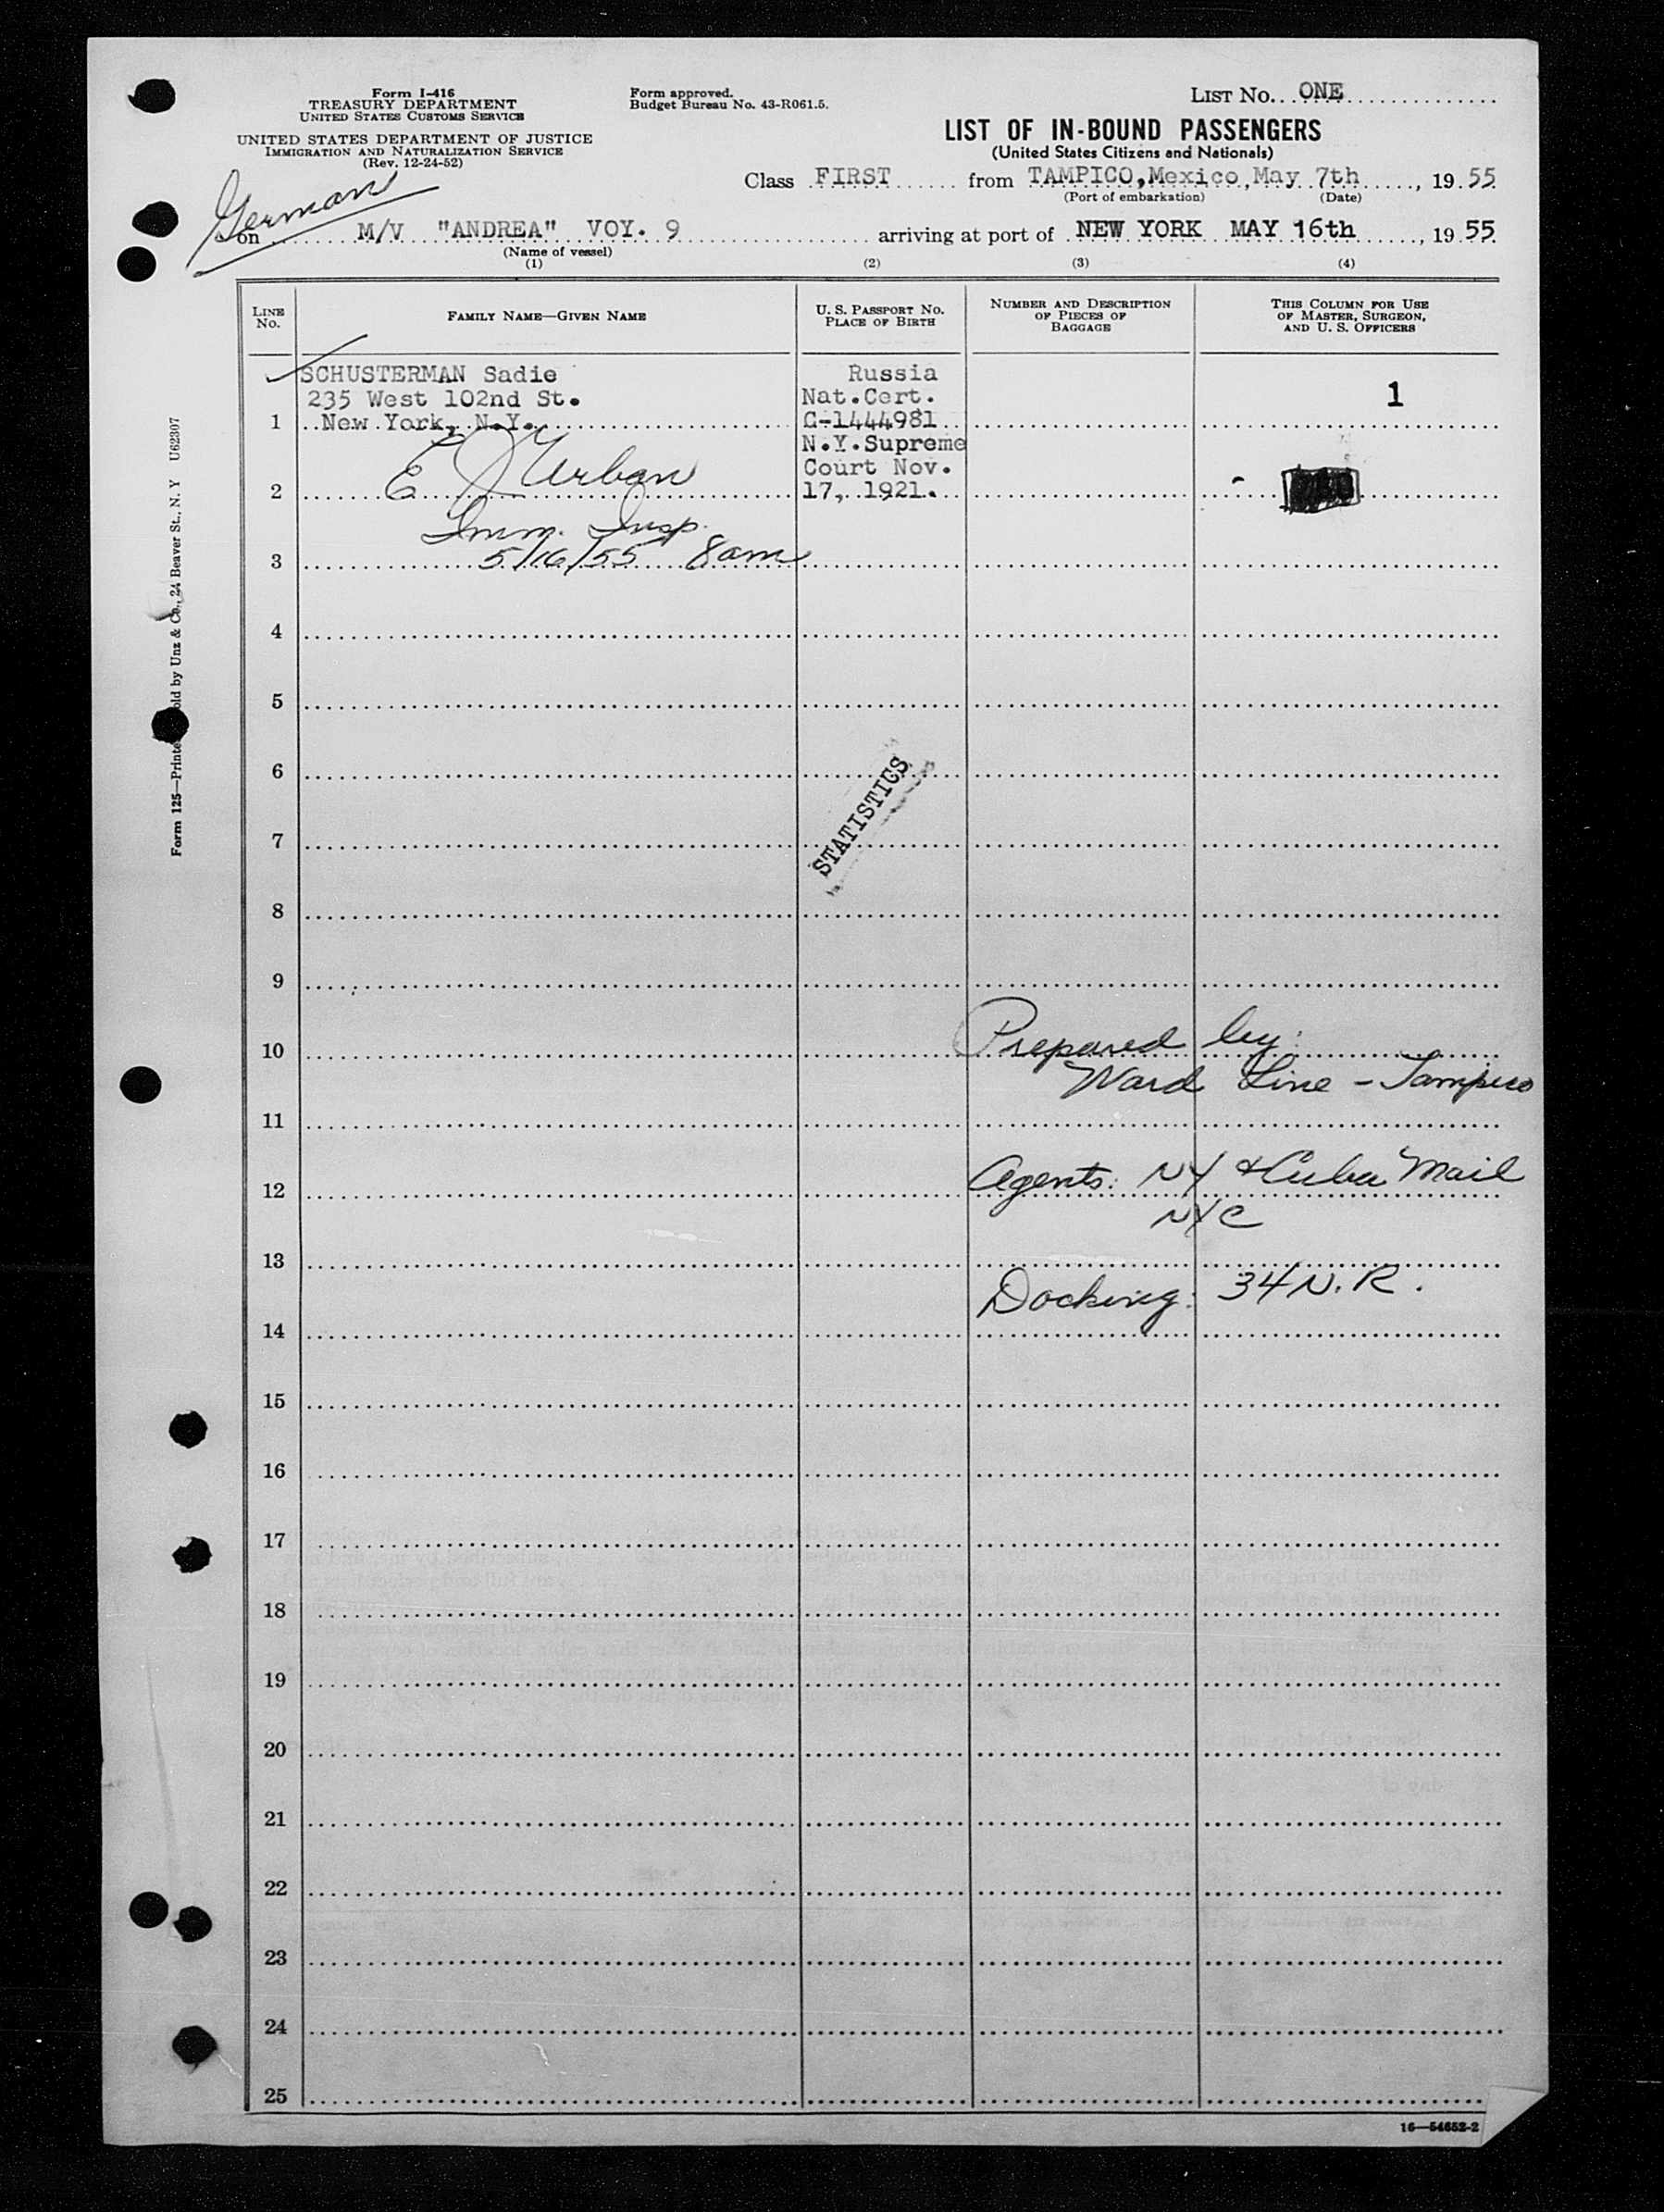 Form I-416
TREASURY DEPARTMENT
UNITED STATES CUSTOMS SERVICE
UNITED STATES DEPARTMENT OF JUSTICE
IMMIGRATION AND NATURALIZATION SERVICE
(Rev. 12-24-52)
Form approved.
Budget Bureau No. 43-R061.5.
LIST No. ONE
LIST OF IN-BOUND PASSENGERS
(United States Citizens and Nationals)
Class FIRST from TAMPICO, Mexico, May 7th, 19 55
(Port of embarkation) (Date)
German
on M/V "ANDREA" VOY. 9 arriving at port of NEW YORK MAY 16th, 19 55
(Name of vessel)
(1) (2) (3) (4)
LINE No.
FAMILY NAME—GIVEN NAME
U. S. PASSPORT NO.
PLACE OF BIRTH
NUMBER AND DESCRIPTION
OF PIECES OF
BAGGAGE
THIS COLUMN FOR USE
OF MASTER, SURGEON,
AND U. S. OFFICERS
SCHUSTERMAN Sadie Russia
235 West 102nd St. Nat.Cert. 1
1 New York, N.Y. C-1444981
N.Y.Supreme
E J Urban Court Nov.
2 17, 1921. -
Imm. Insp.
3 5/16/55 8am
4
5
6
STATISTICS
7
8
9
10 Prepared by:
Ward Line - Tampico
11
12 Agents: NY & Cuba Mail
NYC
13
Docking: 34 N.R.
14
15
16
17
18
19
20
21
22
23
24
25
16—54652-2
Form 125—Printe old by Unz & Co., 24 Beaver St., N. Y U62307